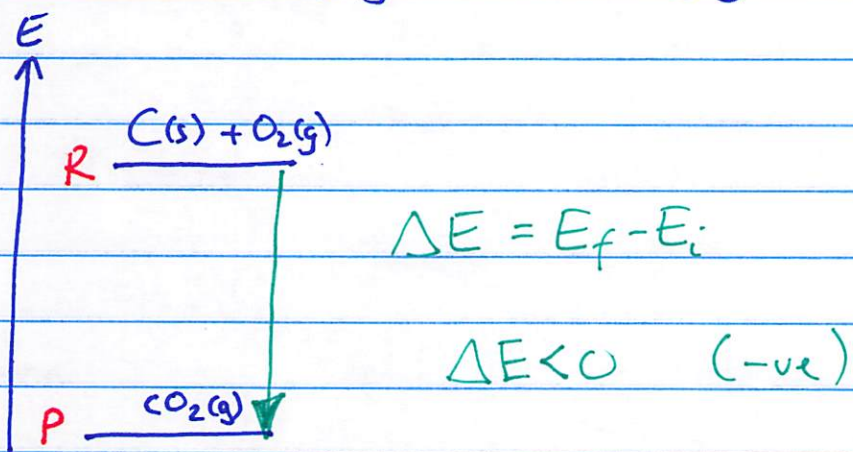 E
C(s) + O₂(g)
R
ΔE = E_f - E_i
ΔE < 0 (-ve)
CO₂(g)
P